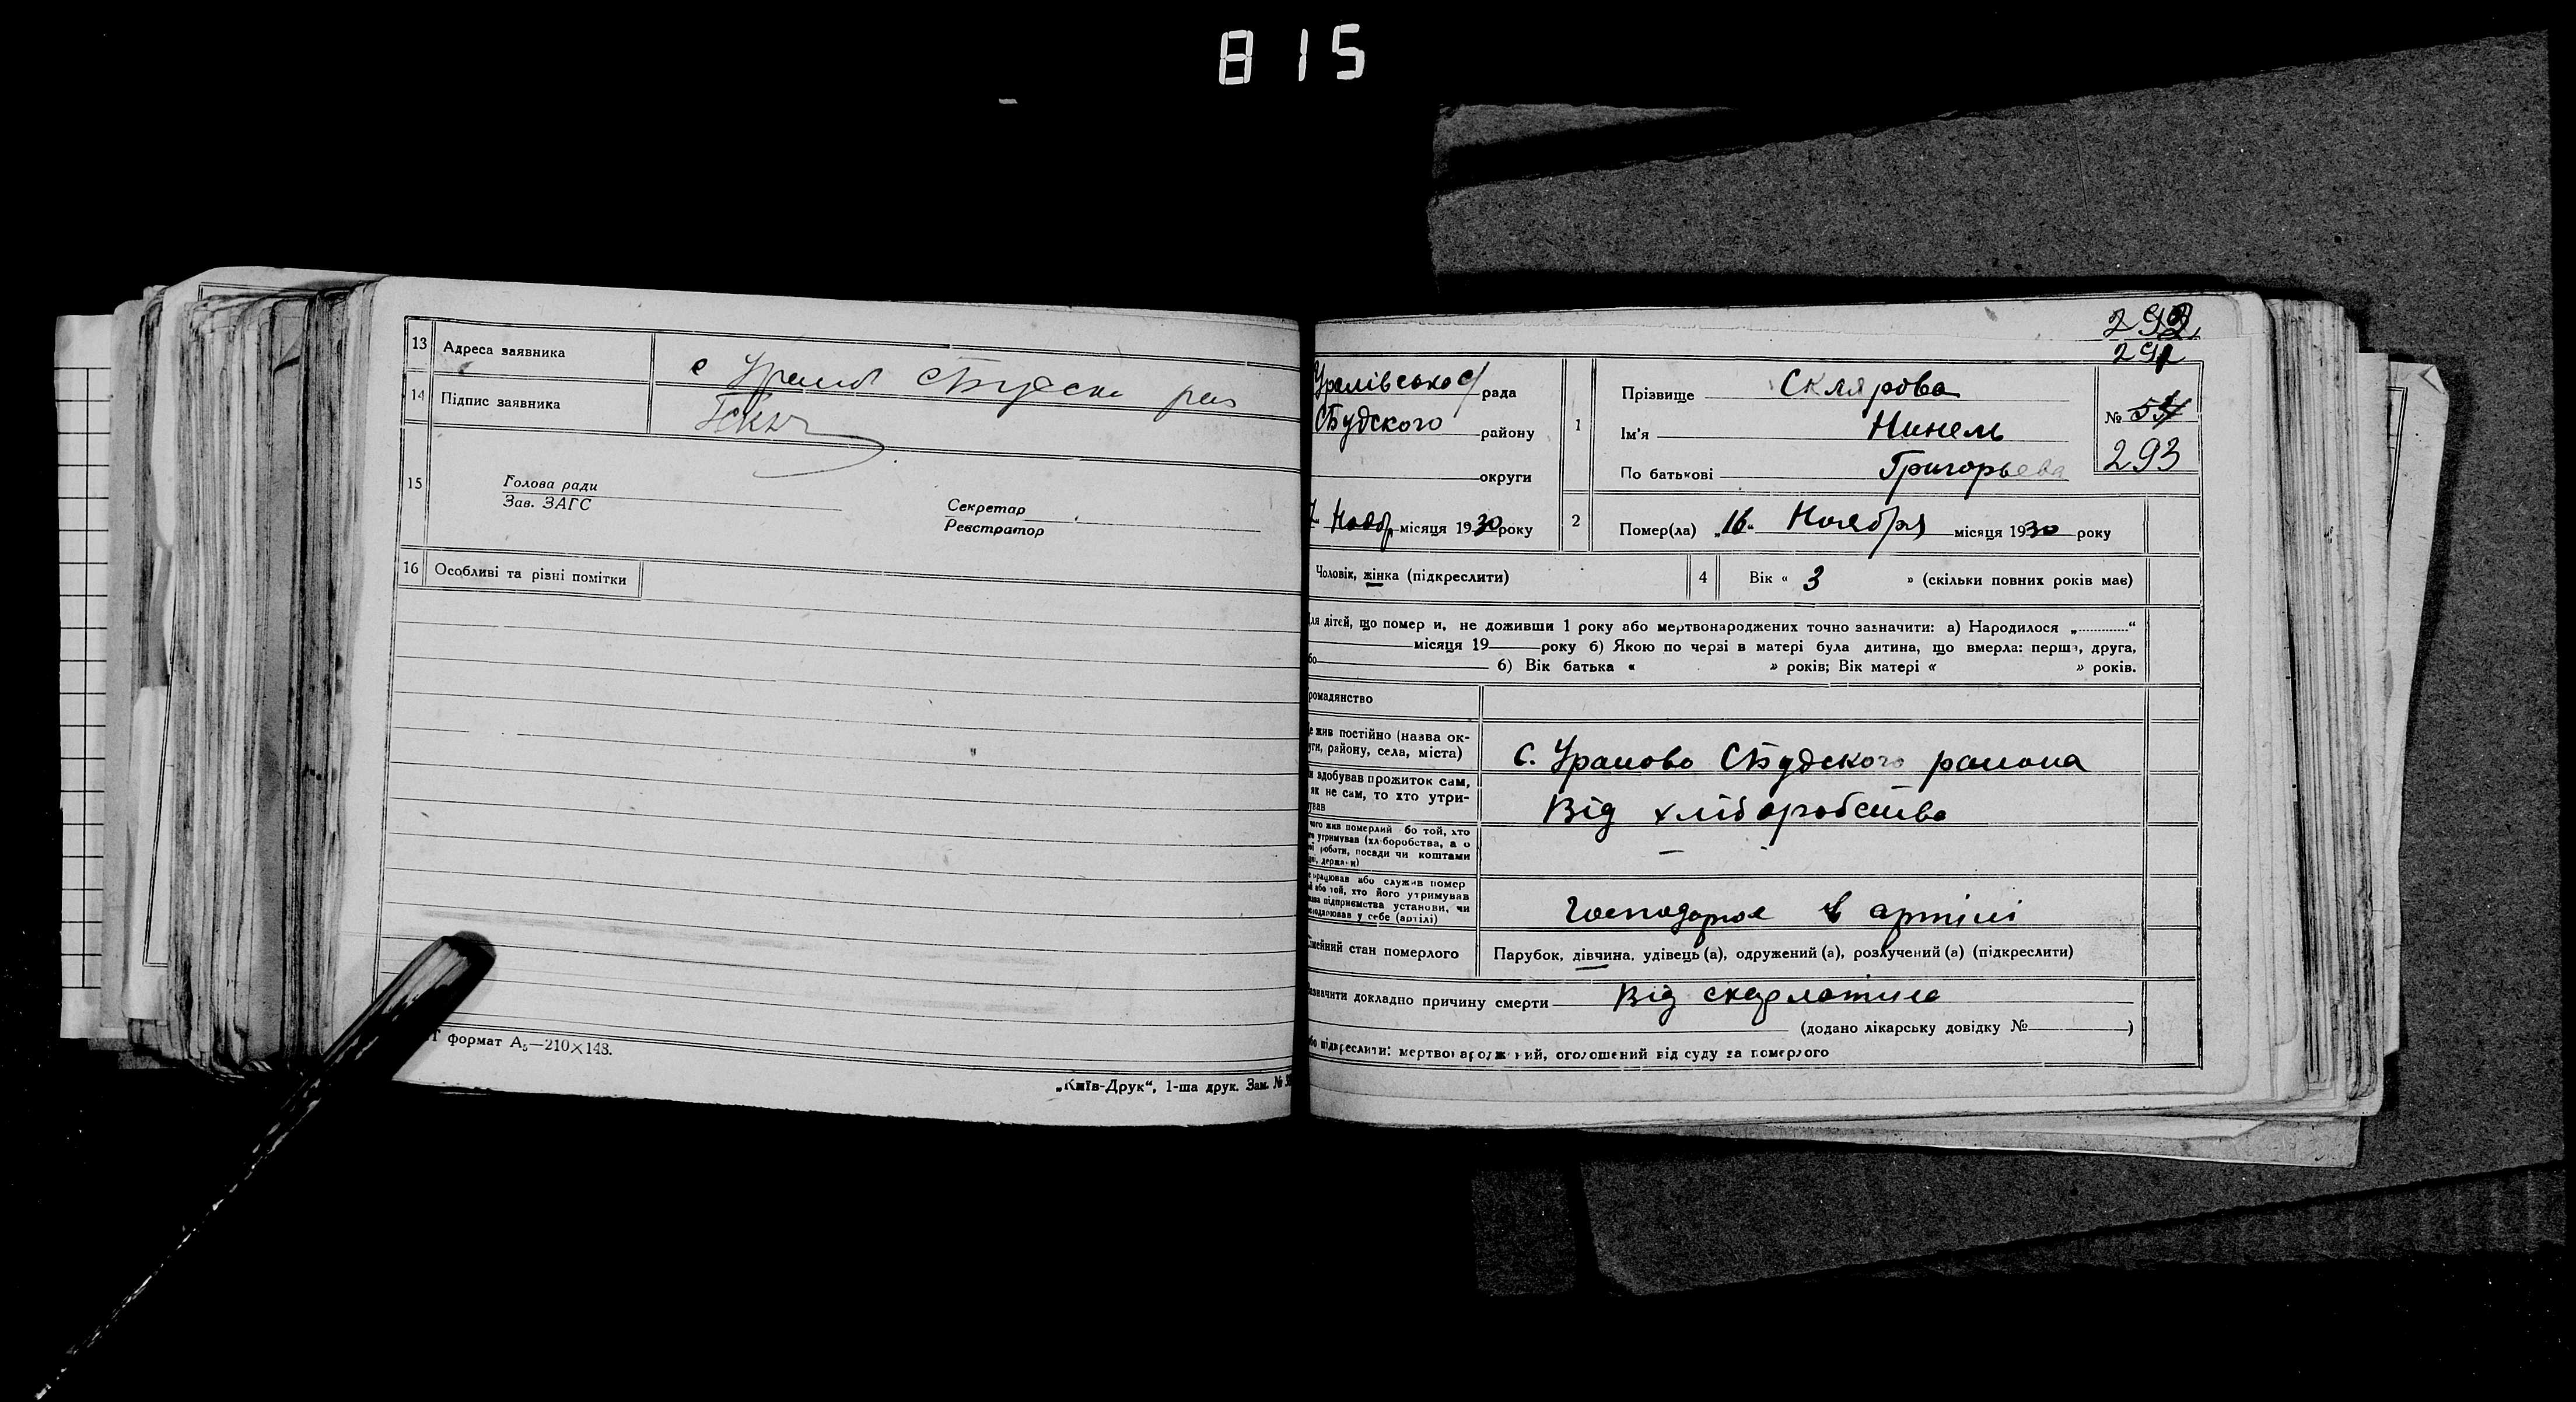 815
13 Адреса заявника
с Уралов СБудско рай
14 Підпис заявника
15
Голова ради
Зав. ЗАГС
Секретар
Реєстратор
16 Особливі та різні помітки
формат А5—210×148.
„Київ-Друк“, 1-ша друк. Зам. №
292
Уралівсько с/рада
СБудского району
округи
Ноябр місяця 1930 року
1 Прізвище Склярова
Ім'я Нинель
По батькові Григорьева
№ 54
293
2 Помер(ла) „16“ Ноября місяця 1930 року
Чоловік, жінка (підкреслити)
4 Вік « 3 » (скільки повних років має)
ля дітей, що помер и, не доживши 1 року або мертвонароджених точно зазначити: а) Народилося „............“
місяця 19 року б) Якою по черзі в матері була дитина, що вмерла: перша, друга,
бо б) Вік батька « » років; Вік матері « » років.
ромадянство
е жив постійно (назва ок-
уги, району, села, міста)
с. Уралово СБудского района
и здобував прожиток сам,
як не сам, то хто утри-
ував
Від хліборобства
чого жив померлий бо той, хто
го утримував (хліборобства, а о
ої роботи, посади чи коштами
держави)
—
е працював або служив помер
й або той, хто його утримував
зва підприємства установи, чи
осподарював у себе (артілі)
Господарюе в артілі
імейний стан померлого
Парубок, дівчина, удівець (а), одружений (а), розлучений (а) (підкреслити)
азначити докладно причину смерти Від скарлатине
(додано лікарську довідку № )
бо підкреслити: мертвонароджений, оголошений від суду за померлого